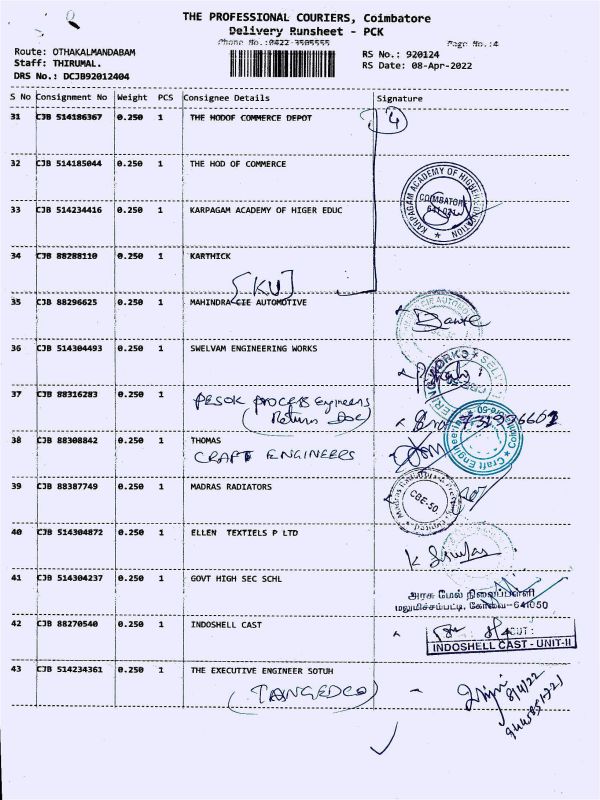 THE PROFESSIONAL COURIERS, Coimbatore
Delivery Runsheet - PCK
Phone No.:0422-3505555
Page No.:4
Route: OTHAKALMANDABAM
RS No.: 920124
Staff: THIRUMAL.
RS Date: 08-Apr-2022
DRS No.: DCJB92012404
S No Consignment No Weight PCS Consignee Details Signature
31 CJB 514186367 0.250 1 THE HODOF COMMERCE DEPOT
4
32 CJB 514185044 0.250 1 THE HOD OF COMMERCE
KARPAGAM ACADEMY OF HIGHER EDUCATION
COIMBATORE
641 021
33 CJB 514234416 0.250 1 KARPAGAM ACADEMY OF HIGER EDUC
34 CJB 88288110 0.250 1 KARTHICK
[KU]
35 CJB 88296625 0.250 1 MAHINDRA CIE AUTOMOTIVE
36 CJB 514304493 0.250 1 SWELVAM ENGINEERING WORKS
37 CJB 88316283 0.250 1 PESOK PROCESS Engineers
(Return Doc)
38 CJB 88308842 0.250 1 THOMAS
CRAFT ENGINEERS
Craft Engineers
39 CJB 88387749 0.250 1 MADRAS RADIATORS
CBE-50
40 CJB 514304872 0.250 1 ELLEN TEXTIELS P LTD
41 CJB 514304237 0.250 1 GOVT HIGH SEC SCHL
அரசு மேல் நிலைப்பள்ளி
மலுமிச்சம்பட்டி, கோவை-641050
42 CJB 88270540 0.250 1 INDOSHELL CAST
INDOSHELL CAST - UNIT-II
43 CJB 514234361 0.250 1 THE EXECUTIVE ENGINEER SOTUH
(TANGEDCO)
8/4/22